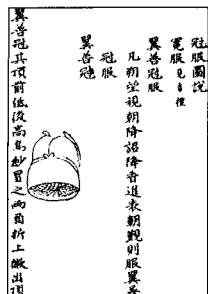 冠服圖說
冕服見吉禮
翼善冠服
凡朔望視朝降詔降香進表朝覲則服翼善
冠服
翼善冠
翼善冠其頂前低後高烏紗冒之兩角折上繳出頂